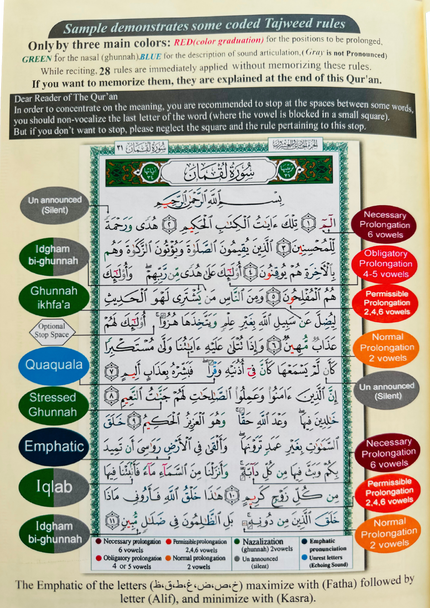 Sample demonstrates some coded Tajweed rules
Only by three main colors: RED(color graduation) for the positions to be prolonged,
GREEN for the nasal (ghunnah),BLUE for the description of sound articulation,(Gray is not Pronounced)
While reciting, 28 rules are immediately applied without memorizing these rules.
If you want to memorize them, they are explained at the end of this Qur'an.
Dear Reader of The Qur'an
In order to concentrate on the meaning, you are recommended to stop at the spaces between some words,
you should non-vocalize the last letter of the word (where the vowel is blocked in a small square).
But if you don't want to stop, please neglect the square and the rule pertaining to this stop.
سُورَةُ لُقْمَان ٣١
سُورَةُ لُقْمَان
بِسْمِ ٱللَّهِ ٱلرَّحْمَـٰنِ ٱلرَّحِيمِ
الٓمٓ ١ تِلْكَ ءَايَـٰتُ ٱلْكِتَـٰبِ ٱلْحَكِيمِ ٢ هُدًى وَرَحْمَةً
لِّلْمُحْسِنِينَ ٣ ٱلَّذِينَ يُقِيمُونَ ٱلصَّلَوٰةَ وَيُؤْتُونَ ٱلزَّكَوٰةَ وَهُم
بِٱلْـَٔاخِرَةِ هُمْ يُوقِنُونَ ٤ أُو۟لَـٰٓئِكَ عَلَىٰ هُدًى مِّن رَّبِّهِمْ وَأُو۟لَـٰٓئِكَ
هُمُ ٱلْمُفْلِحُونَ ٥ وَمِنَ ٱلنَّاسِ مَن يَشْتَرِى لَهْوَ ٱلْحَدِيثِ
لِيُضِلَّ عَن سَبِيلِ ٱللَّهِ بِغَيْرِ عِلْمٍ وَيَتَّخِذَهَا هُزُوًا أُو۟لَـٰٓئِكَ لَهُمْ
عَذَابٌ مُّهِينٌ ٦ وَإِذَا تُتْلَىٰ عَلَيْهِ ءَايَـٰتُنَا وَلَّىٰ مُسْتَكْبِرًا
كَأَن لَّمْ يَسْمَعْهَا كَأَنَّ فِىٓ أُذُنَيْهِ وَقْرًا فَبَشِّرْهُ بِعَذَابٍ أَلِيمٍ ٧
إِنَّ ٱلَّذِينَ ءَامَنُوا۟ وَعَمِلُوا۟ ٱلصَّـٰلِحَـٰتِ لَهُمْ جَنَّـٰتُ ٱلنَّعِيمِ ٨
خَـٰلِدِينَ فِيهَا وَعْدَ ٱللَّهِ حَقًّا وَهُوَ ٱلْعَزِيزُ ٱلْحَكِيمُ ٩ خَلَقَ
ٱلسَّمَـٰوَٰتِ بِغَيْرِ عَمَدٍ تَرَوْنَهَا وَأَلْقَىٰ فِى ٱلْأَرْضِ رَوَٰسِىَ أَن تَمِيدَ
بِكُمْ وَبَثَّ فِيهَا مِن كُلِّ دَآبَّةٍ وَأَنزَلْنَا مِنَ ٱلسَّمَآءِ مَآءً فَأَنۢبَتْنَا فِيهَا
مِن كُلِّ زَوْجٍ كَرِيمٍ ١٠ هَـٰذَا خَلْقُ ٱللَّهِ فَأَرُونِى مَاذَا
خَلَقَ ٱلَّذِينَ مِن دُونِهِۦ بَلِ ٱلظَّـٰلِمُونَ فِى ضَلَـٰلٍ مُّبِينٍ ١١
Un announced
(Silent)
Idgham
bi-ghunnah
Ghunnah
ikhfa'a
Optional
Stop Space
Quaquala
Stressed
Ghunnah
Emphatic
Iqlab
Idgham
bi-ghunnah
Necessary
Prolongation
6 vowels
Obligatory
Prolongation
4-5 vowels
Permissible
Prolongation
2,4,6 vowels
Normal
Prolongation
2 vowels
Un announced
(Silent)
Necessary
Prolongation
6 vowels
Permissible
Prolongation
2,4,6 vowels
Normal
Prolongation
2 vowels
Necessary prolongation
6 vowels
Permissible prolongation
2,4,6 vowels
Nazalization
(ghunnah) 2vowels
Emphatic
pronunciation
Obligatory prolongation
4 or 5 vowels
Normal prolongation
2 vowels
Un announced
(silent)
Unrest letters
(Echoing Sound)
The Emphatic of the letters (خ،ص،ض،غ،ط،ق،ظ) maximize with (Fatha) followed by
letter (Alif), and minimize with (Kasra).